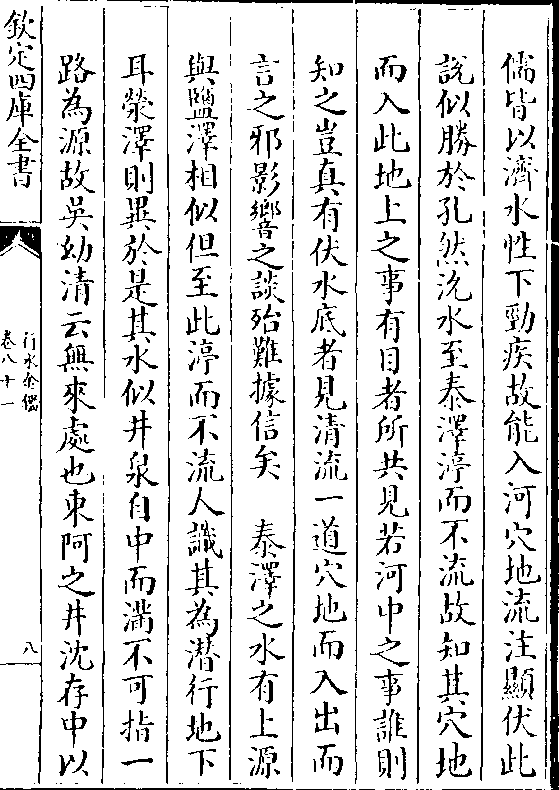 儒皆以濟水性下勁疾故能入河穴地流注顯伏此
說似勝於孔然沇水至泰澤渟而不流故知其穴地
而入此地上之事有目者所共見若河中之事誰則
知之豈真有伏水底者見清流一道穴地而入出而
言之邪影響之談殆難據信矣　泰澤之水有上源
與鹽澤相似但至此渟而不流人識其為潜行地下
耳滎澤則異於是其水似井泉自中而滿不可指一
路為源故吳幼清云無來處也東阿之井沈存中以
欽定四庫全書
行水金鑑
卷八十一
八